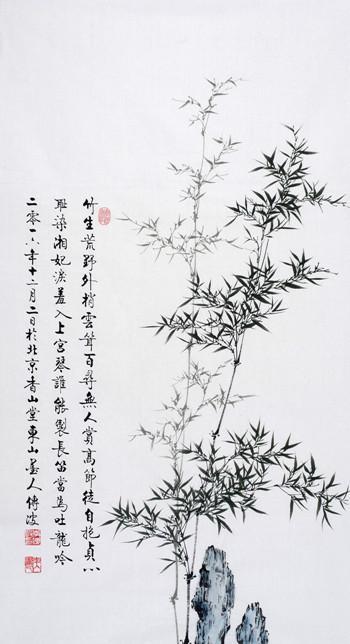 竹生荒野外梢雲聳百尋無人賞高節徒自抱貞心
耻染湘妃淚羞入上宮琴誰能製長笛當為吐龍吟
二零一八年十二月二日於北京香山堂東山墨人傅波